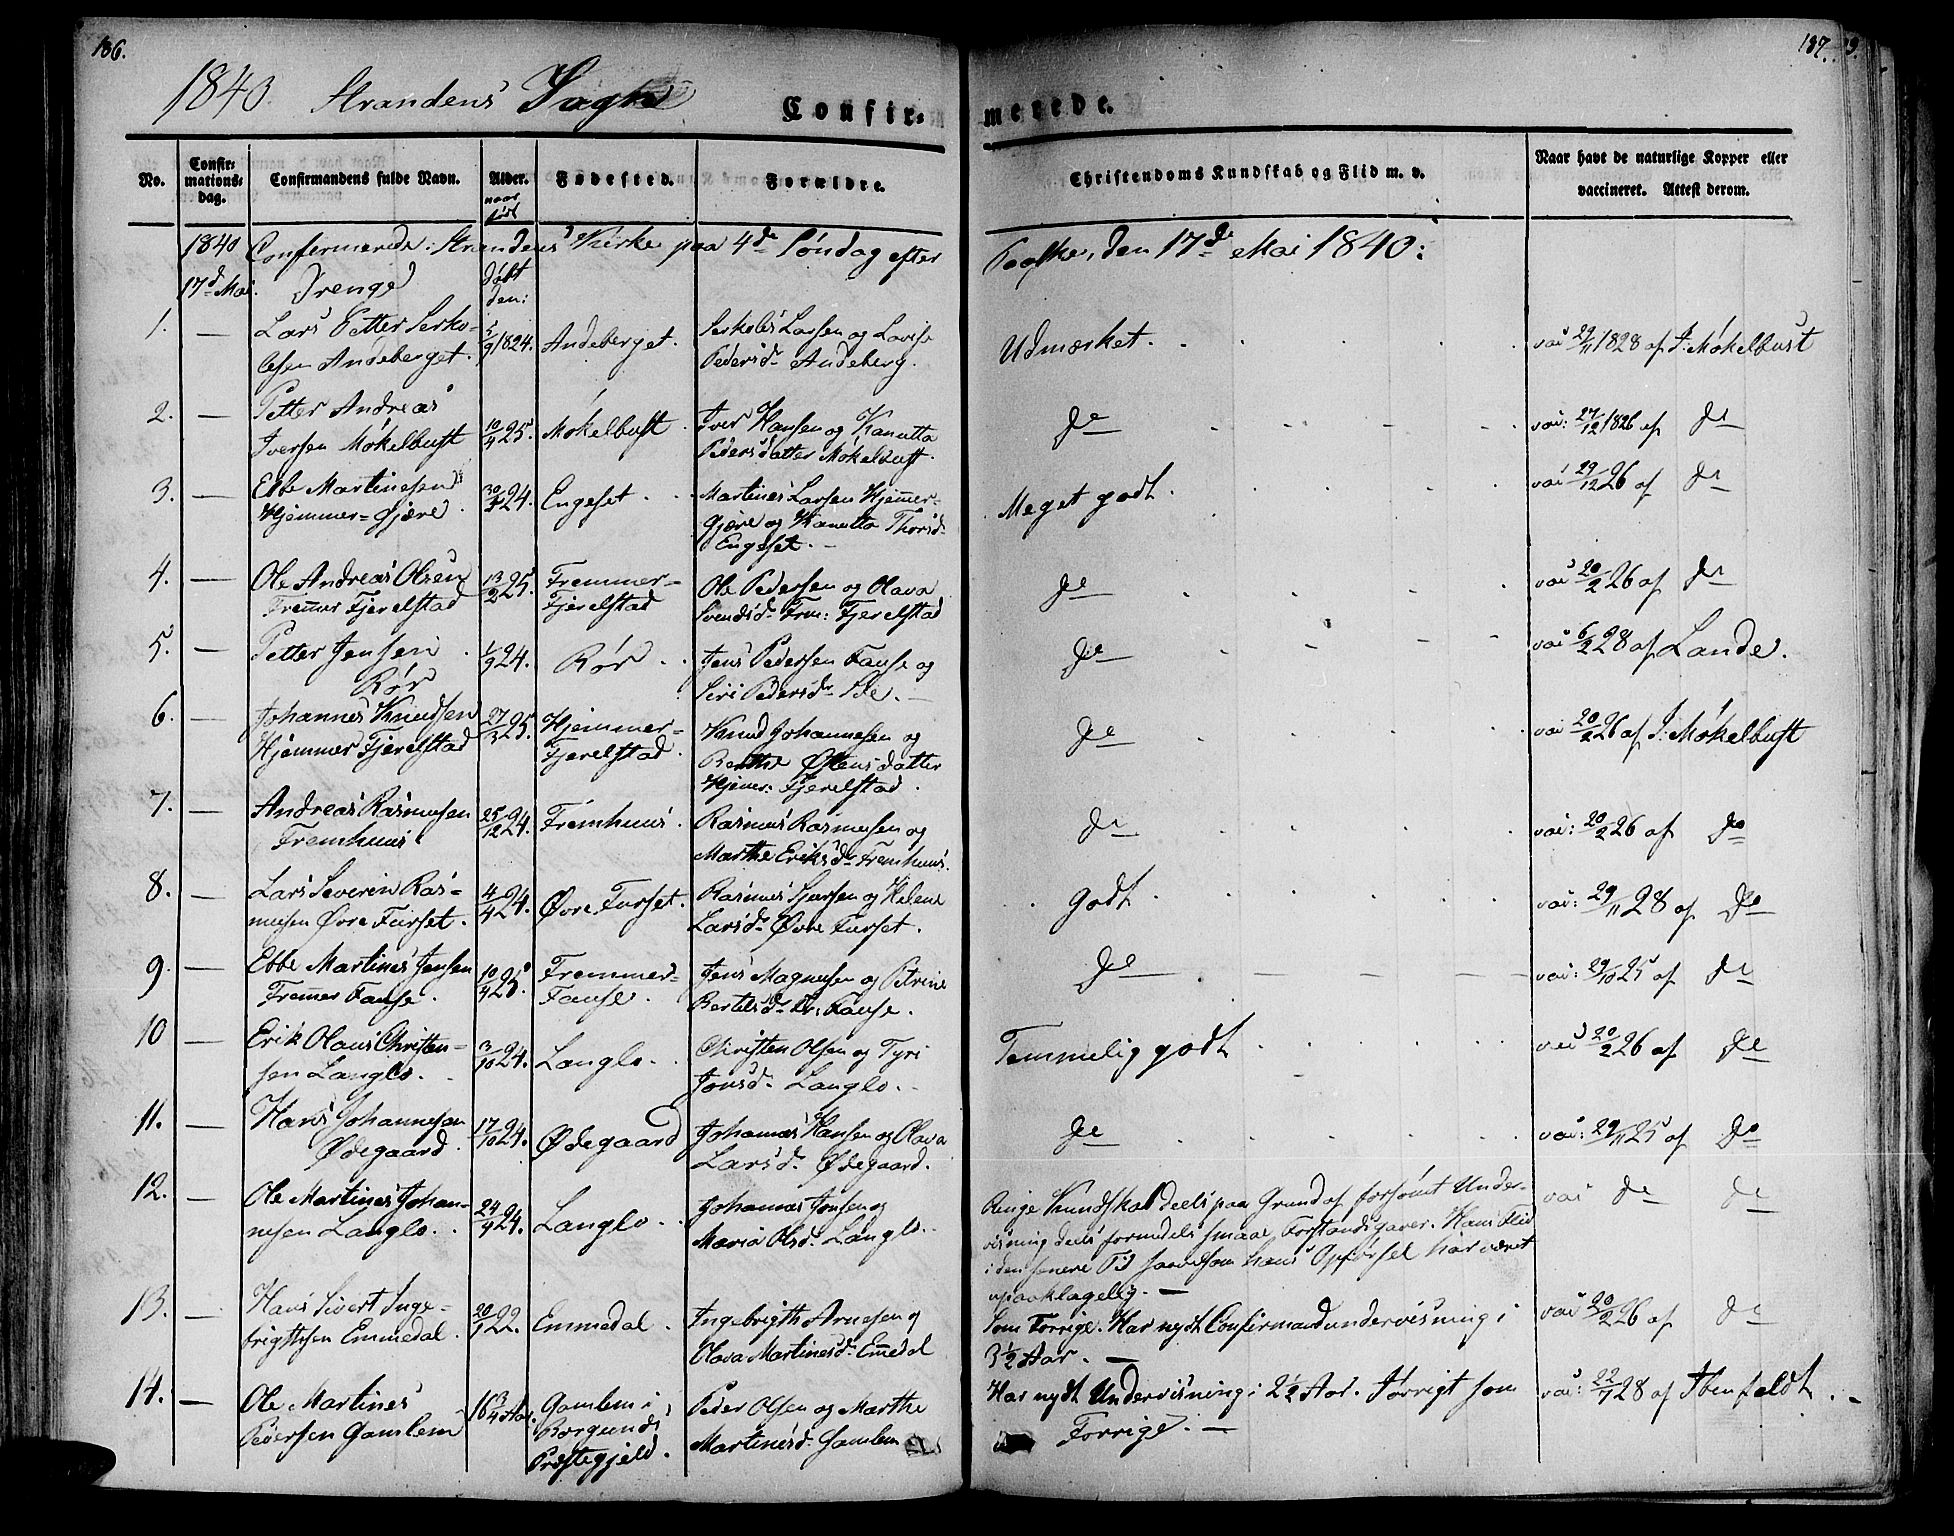 186.
187.
1840. Strandens Sogn
Confir-
merede.
No.
Confir-
mations-
dag.
Confirmandens fulde Navn.
Alder.
naar
født
Fødested.
Forældre.
Christendoms Kundskab og Flid m. v.
Naar havt de naturlige Kopper eller
vaccineret. Attest derom.
1840 Confermerede i Strandens Kirke paa 4de Søndag efter Paaske, den 17de Mai 1840:
17d Mai. Drenge
døbt
den:
1. — Lars Petter Serko-
lesen Andeberget.
5/9 1824. Andeberget.
Serkoles Larsen og Lovise
Pedersd. Andeberg.
Udmærket.
vac 29/11 1828 af J: Møkelbust
2. — Petter Andreas
Iversen Møkelbust
10/4 25. Møkelbust.
Iver Hansen og Kanutta
Pedersdatter Møkelbust.
do
vac: 27/12 1826 af do
3. — Ebbe Martinesen
Hjemmer-Gjære.
30/4 24. Engeset.
Martines Larsen Hjemmer-
gjære og Kanutta Thorsd.
Engeset.
Meget godt
vac 29/12 26 af do
4. — Ole Andreas Olsen
Fremer Fjerelstad
13/2 25. Fremmer-
Fjerelstad
Ole Pedersen og Olava
Svendsd. Frm: Fjerelstad
do
vac 20/2 26 af do
5. — Petter Jensen
Rør
1/9 24. Rør.
Jens Pedersen Fause og
Siri Pedersd. Ste.
do
vac 6/2 28 af Lande.
6. — Johannes Knudsen
Hjemmer Fjerelstad
27/3 25. Hjemmer-
Fjerelstad.
Knud Johannesen og
Berthe Østensdatter
Hjemer: Fjerelstad.
do
vac 20/2 26 af J: Møkelbust
7. — Andreas Rasmusen
Fremhuus
25/12 24. Fremhuus.
Rasmus Rasmusen og
Marthe Eriksd. Fremhuus.
do
vac: 20/2 26 af do
8. — Lars Severin Ras-
musen Øvre Furset.
4/4 24. Øvre Furset.
Rasmus Sjursen og Helene
Larsd. Øvre Furset.
Godt
vac: 29/11 28 af do
9. — Ebbe Martines Jensen
Fremer Fause.
10/4 25. Fremmer-
Fause.
Jens Magnusen og Petrine
Bertelsd. Fr: Fause.
do
vac: 29/10 25 af do
10 — Erik Olaus Christen-
sen Langlo.
3/10 24. Langlo.
Christen Olsen og Tyri
Jonsd. Langlo.
Temmelig godt
vac 20/2 26 af do
11. — Hans Johannesen
Ødegaard.
17/10 24. Ødegaard
Johannes Hansen og Olava
Larsd. Ødegaard.
do
vac: 29/11 25 af do
12. — Ole Martines Johan-
nesen Langlo.
24/4 24. Langlo.
Johannes Jonsen og
Maria Olsd. Langlo.
Ringe Kundskab deels paa Grund af forsømt Under-
visning deels formedels smaae Forstandsgaver. Hans Flid
i den senere Tid saavelsom hans Opførsel har været
upaaklagelig.
vac do do
13. — Hans Sivert Inge-
brigthsen Emmedal.
20/1 22. Emmedal.
Ingebrigth Arnesen og
Olava Martinesd. Emedal
Som Forrige. Har nydt Confirmandundervisning i
3 1/2 Aar.
vac 20/2 26 af do
14. — Ole Martines
Pedersen Gamlem
16 3/4 Aar. Gamlem i
Borgunds
Præstegjeld.
Peder Olsen og Marthe
Martinesd. Gamlem
Har nydt Undervisning i 2 1/2 Aar. Førrigt som
Forrige.
vac: 22/1 28 af Ibenfeldt.